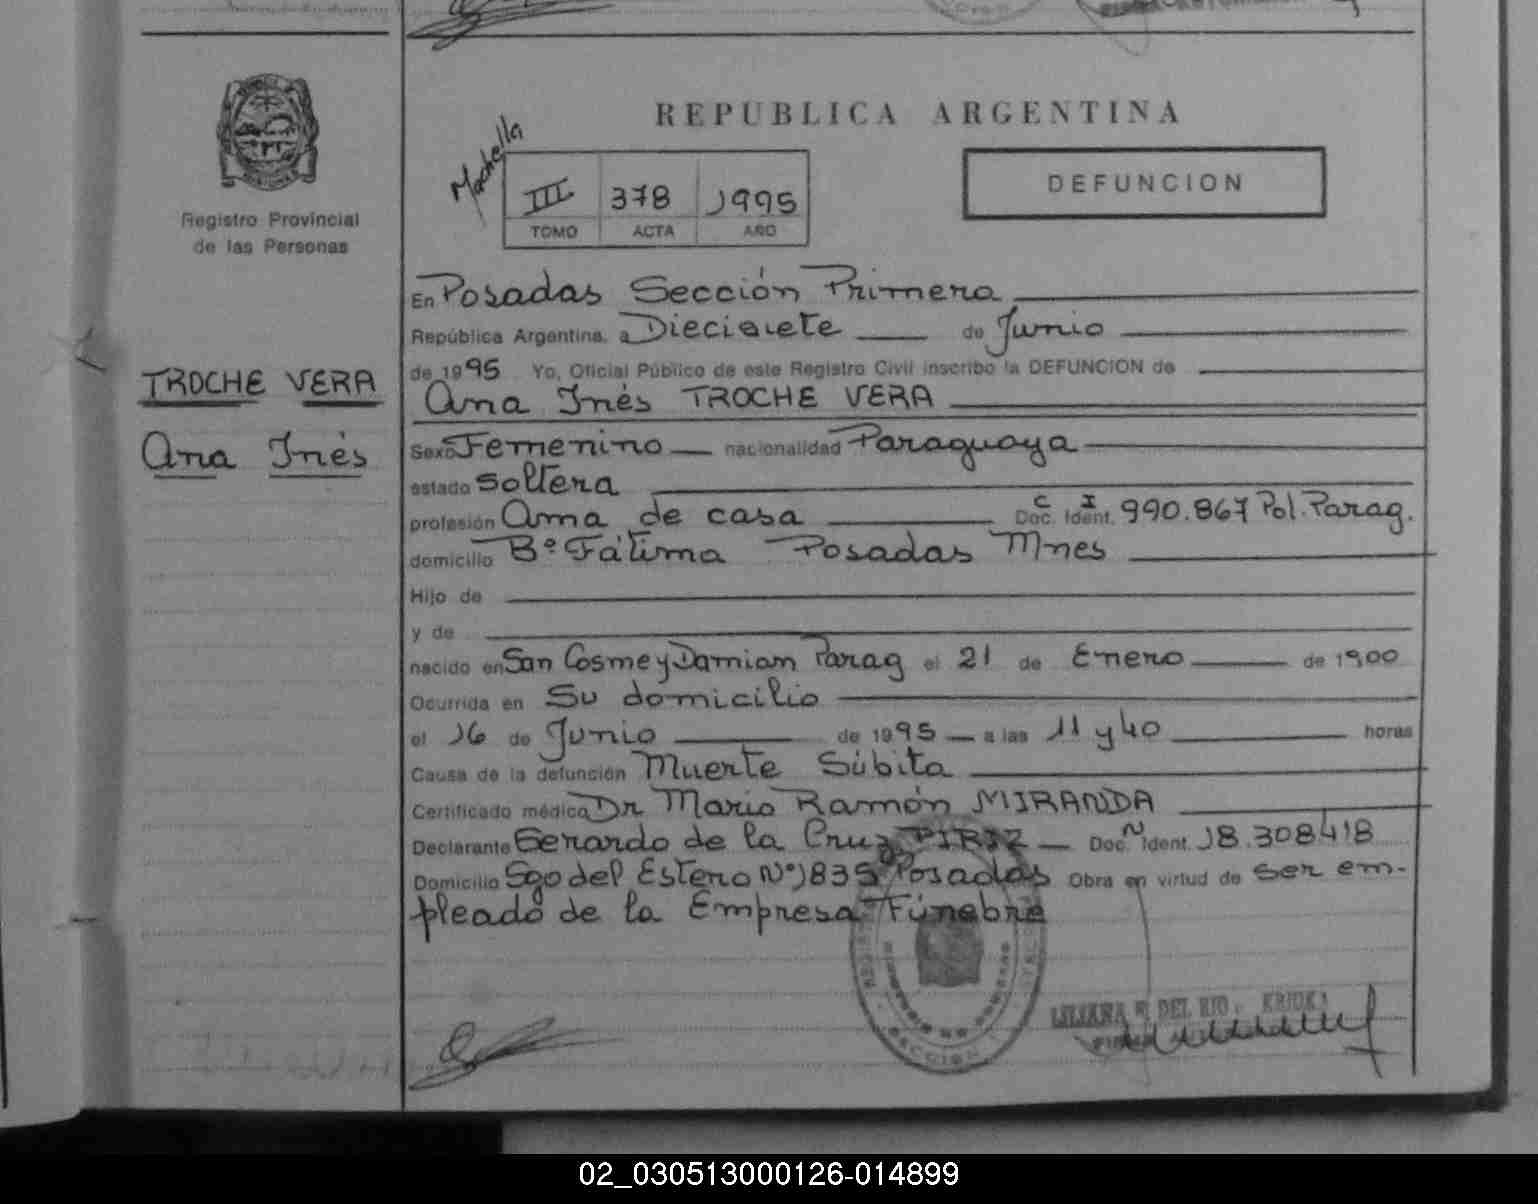 REPUBLICA ARGENTINA
Registro Provincial
de las Personas
III 378 1995
TOMO ACTA AÑO
DEFUNCION
TROCHE VERA
Ana Inés
En Posadas Sección Primera
República Argentina, a Diecisiete de Junio
de 1995 Yo, Oficial Público de este Registro Civil inscribo la DEFUNCION de
Ana Inés TROCHE VERA
Sexo Femenino nacionalidad Paraguaya
estado Soltera
profesión Ama de casa Doc. Ident. C I 990.867 Pol. Parag.
domicilio Bº Fátima Posadas Mnes
Hijo de
y de
nacido en San Cosme y Damian Parag el 21 de Enero de 1900
Ocurrida en Su domicilio
el 16 de Junio de 1995 a las 11 y 40 horas
Causa de la defunción Muerte Súbita
Certificado médico Dr Mario Ramón MIRANDA
Declarante Gerardo de la Cruz PIRIZ Doc. N Ident. 18.308418
Domicilio Sgo del Estero Nº 1835 Posadas Obra en virtud de ser em-
pleado de la Empresa Fúnebre
LILIANA DEL RIO
02_030513000126-014899